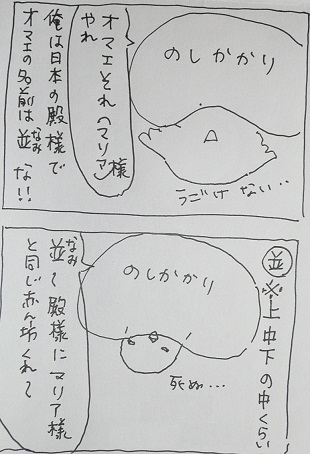 のしかかり
オマエそれ〈マリア〉様
やれ
俺は日本の殿様で
オマエの名前は並な!!
なみ
うごけない‥
並
※上中下の中くらい
のしかかり
死ぬ…
並〜殿様にマリア様
なみ
と同じ赤ん坊くれて